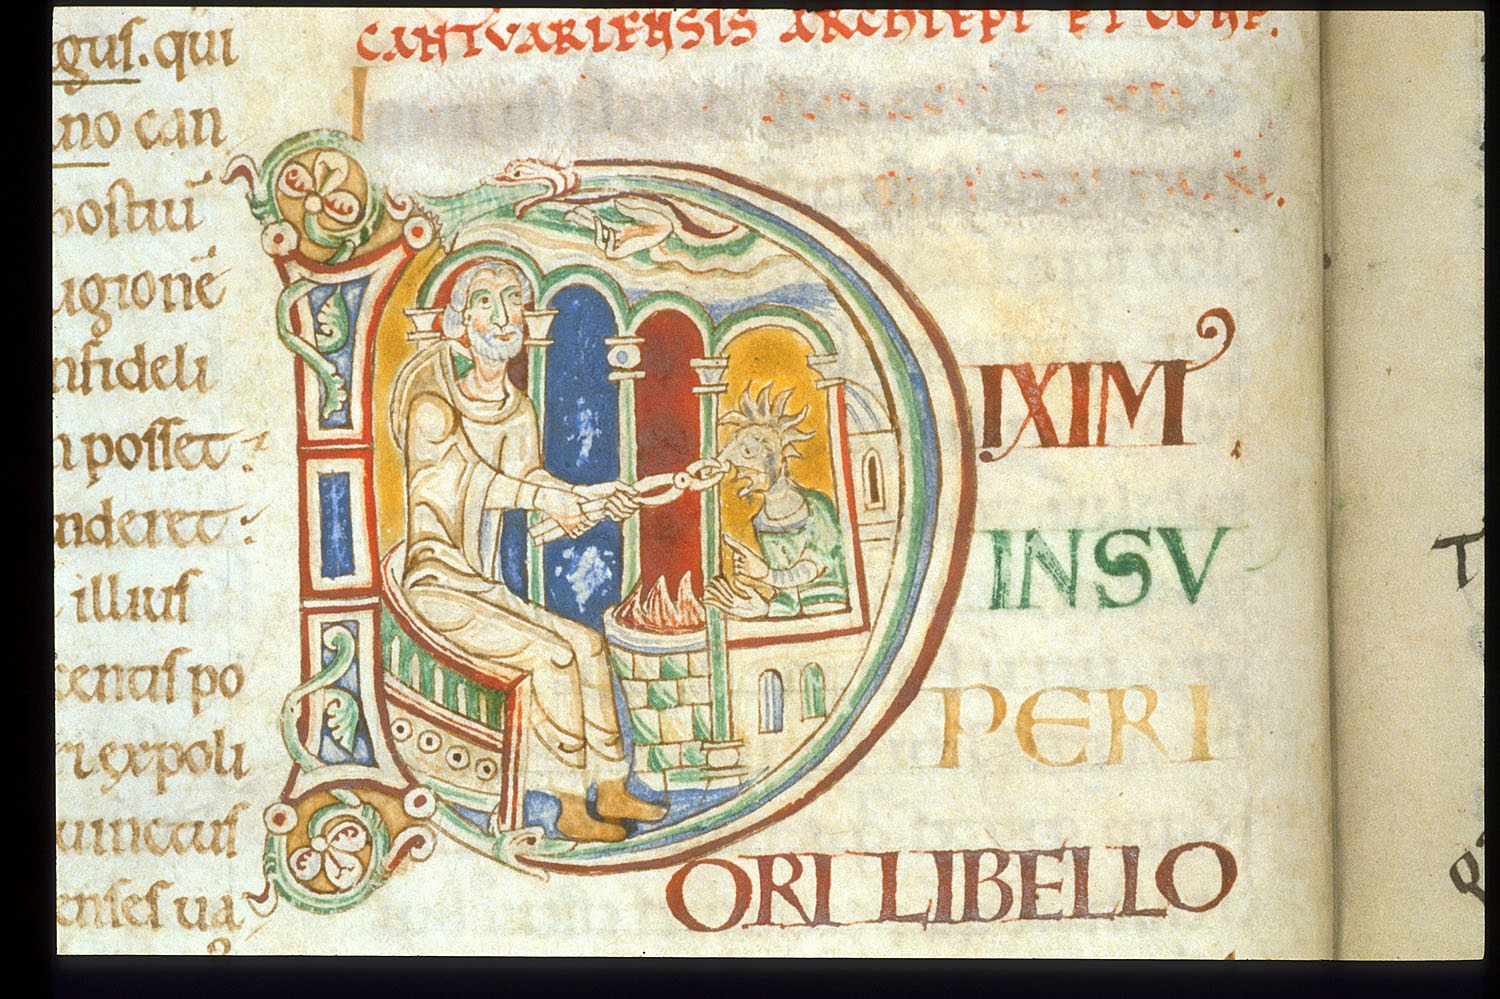 gus. qui
ano can
postiū
agionē
nfideli
n posset
nderet
illius
centis po
ri expoli
uinctus
enses ua
CANTVARIENSIS ARCHIEPI ET CONF.
DIXIM
INSV
PERI
ORI LIBELLO